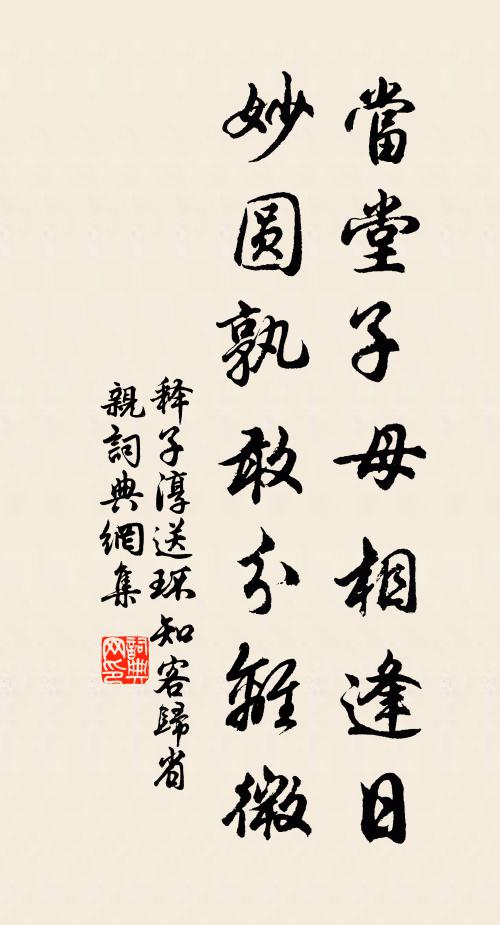 當堂子母相逢日
妙圆孰敢分離微
释子淳送琛知客歸省
親詞典網集
詞典
网印